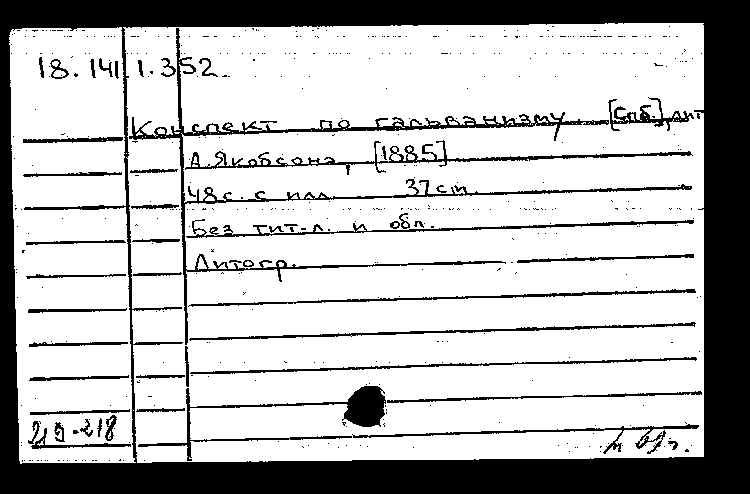 18.141.1.352
Конспект по гальванизму. [Спб.], лит.
А. Якобсона, [1885]
48 с. с илл. 37 см.
Без тит.-л. и обл.
Литогр.